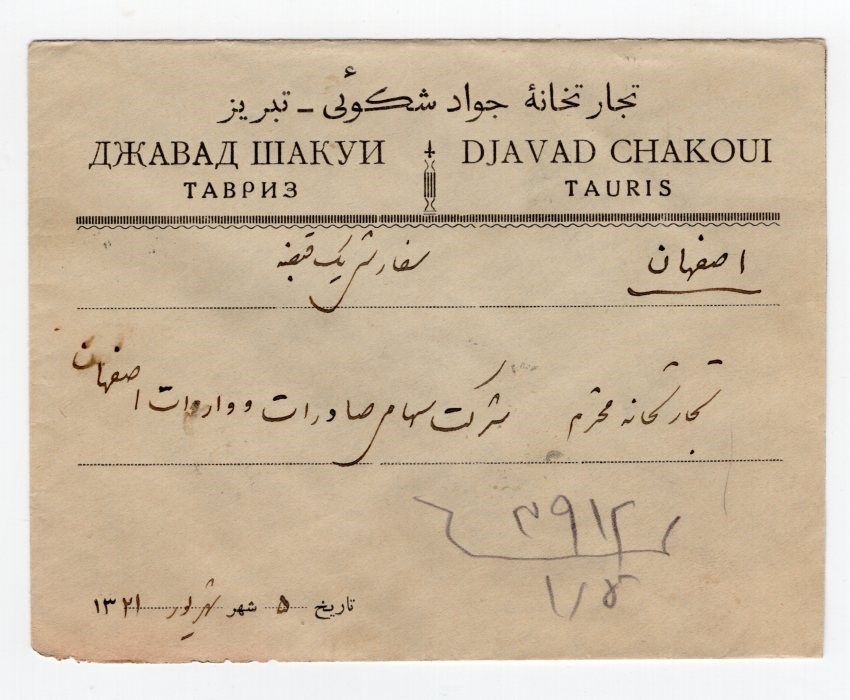 تجارتخانهٔ جواد شکوئی ـ تبریز
ДЖАВАД ШАКУИ
ТАВРИЗ
DJAVAD CHAKOUI
TAURIS
اصفهان
سفارشی یک قبضه
تجارتخانه محترم شرکت سهامی صادرات و واردات اصفهان
۳۹۱۲
تاریخ ۵ شهر شهریور ۱۳۲۱